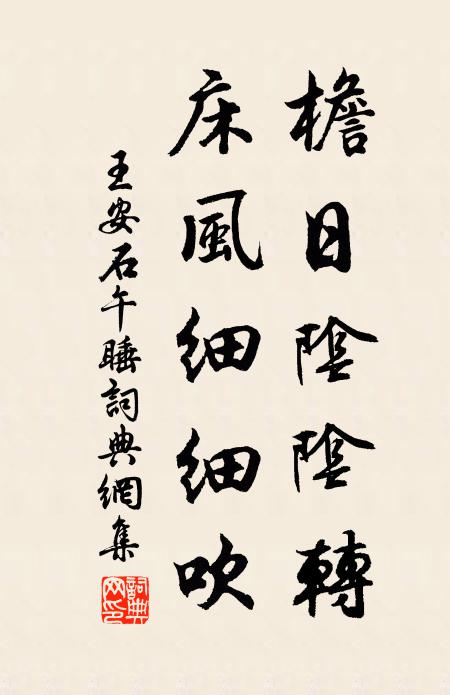 檐日陰陰轉
床風細細吹
王安石午睡詞典網集
詞典網印